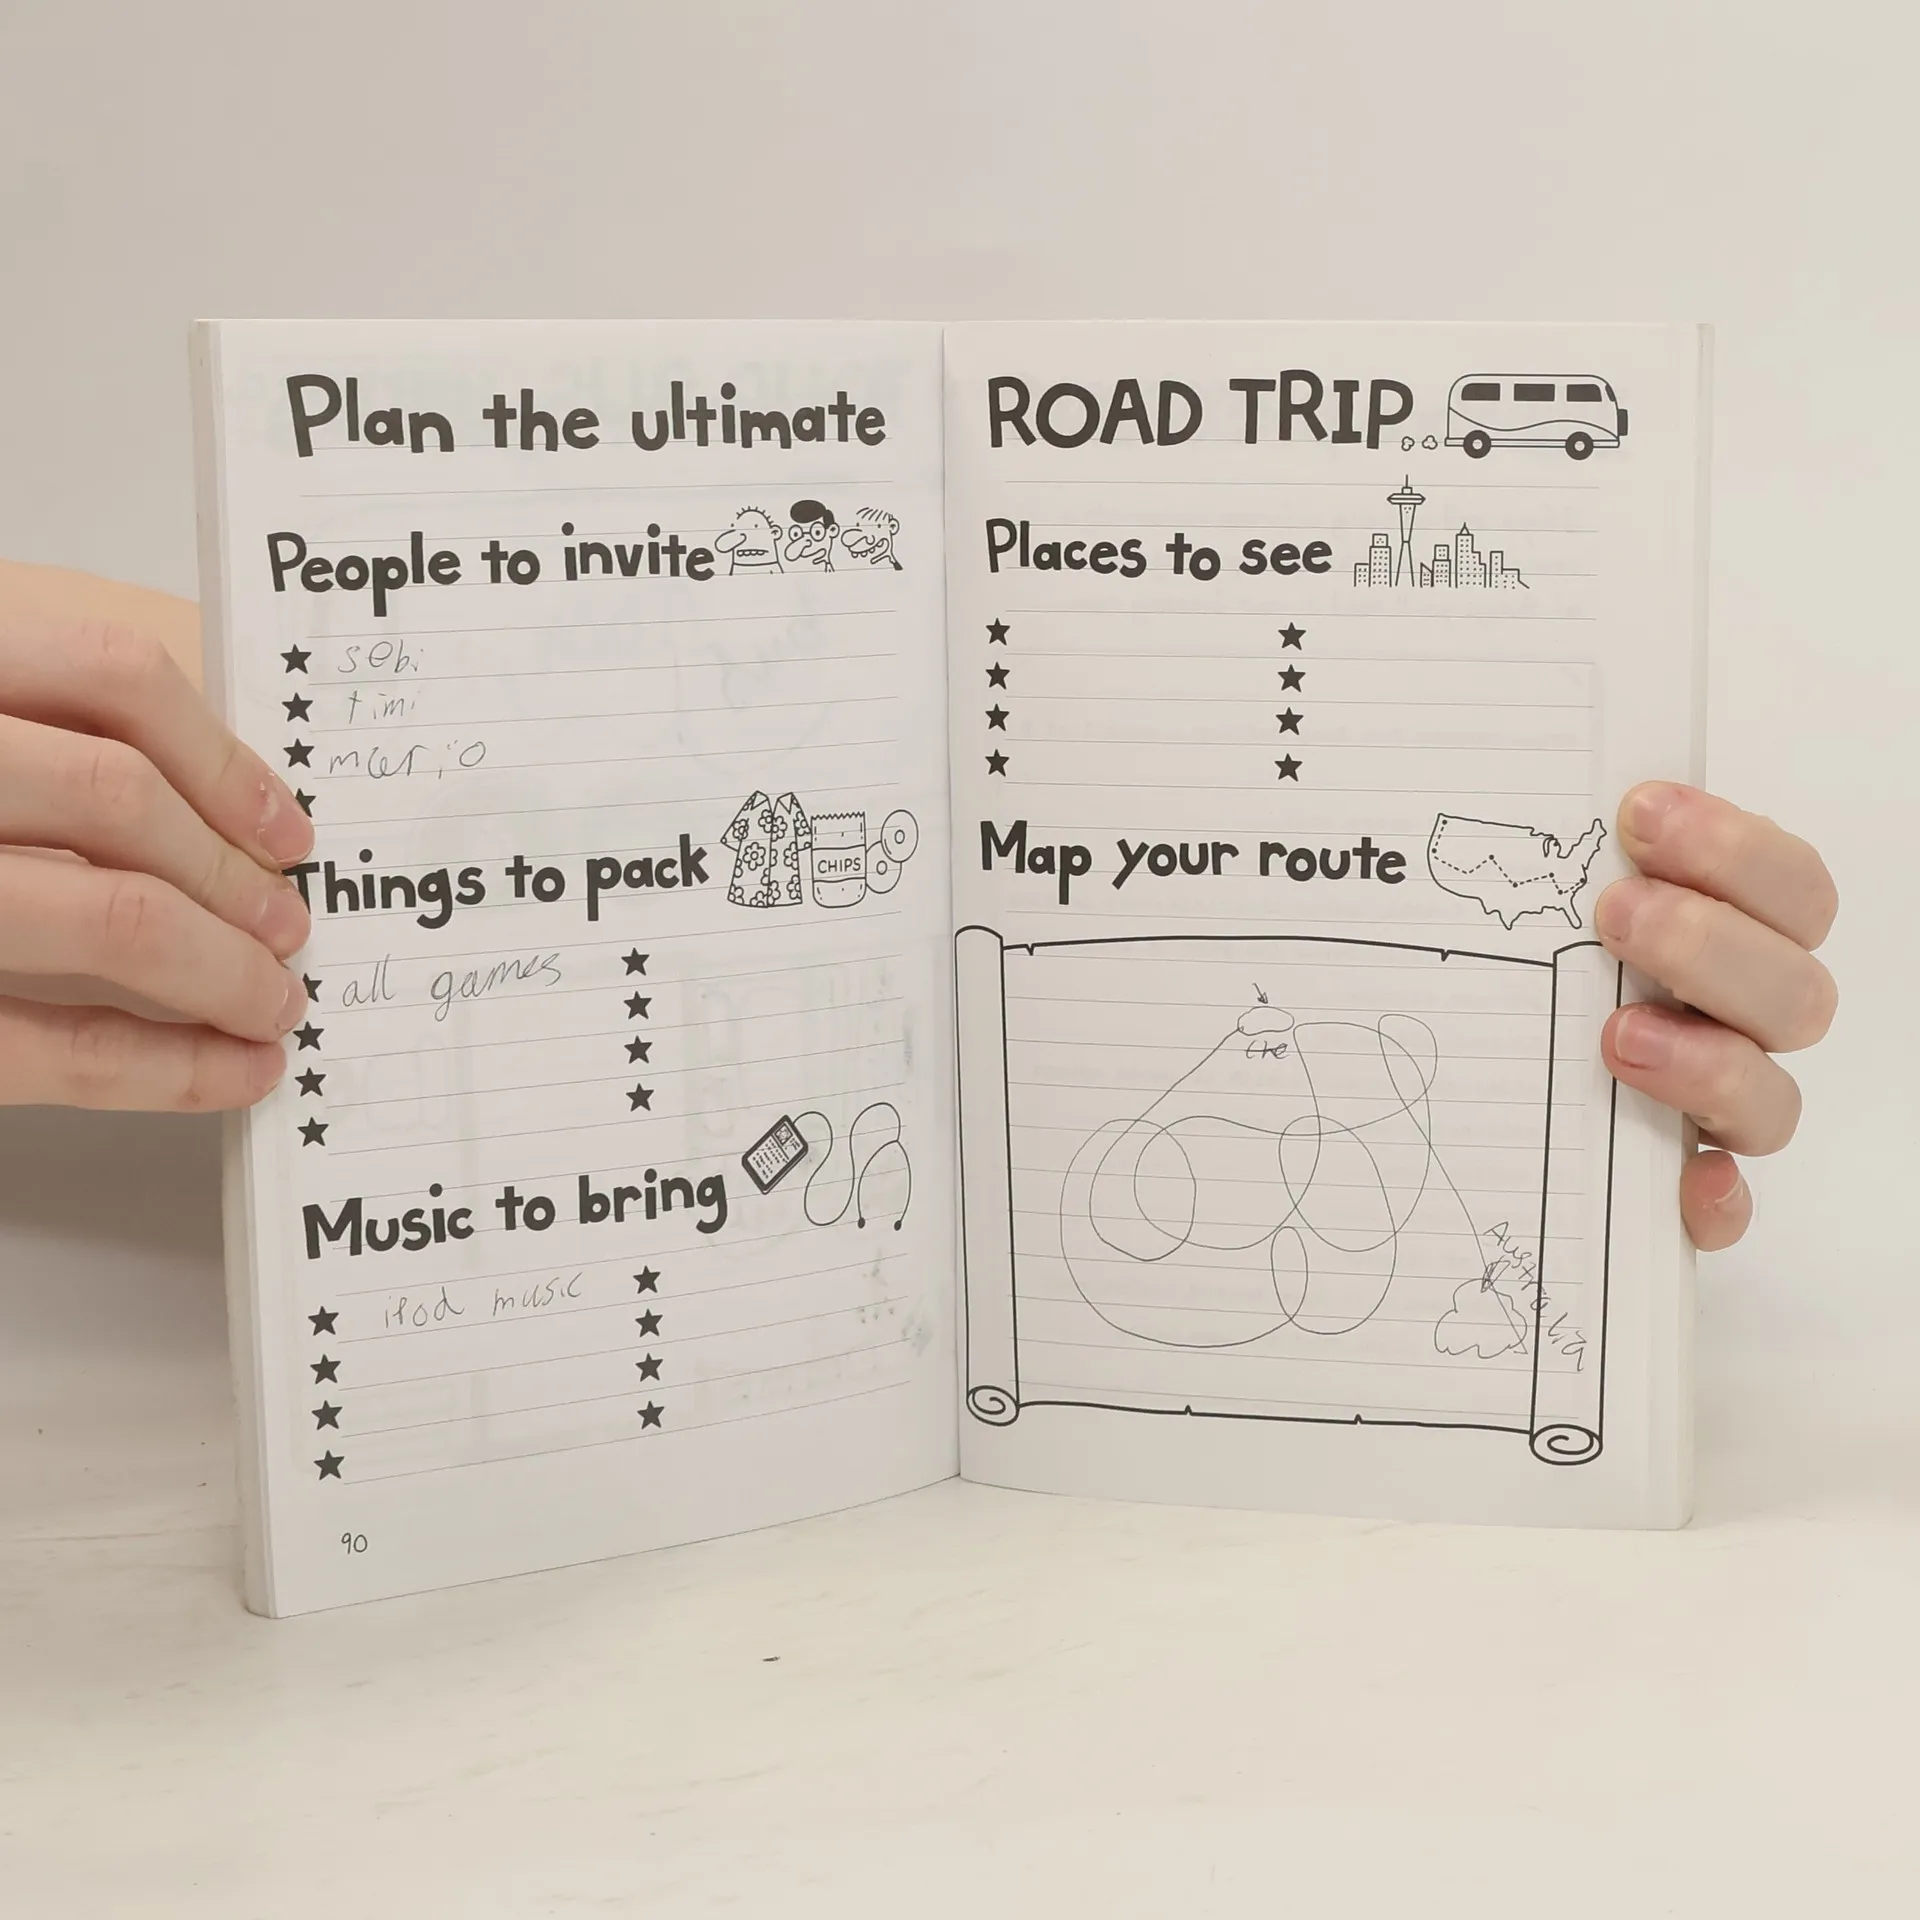 Plan the ultimate
People to invite
sebi
timi
mario
Things to pack
CHIPS
all games
Music to bring
ipod music
90
ROAD TRIP
Places to see
Map your route
Australia